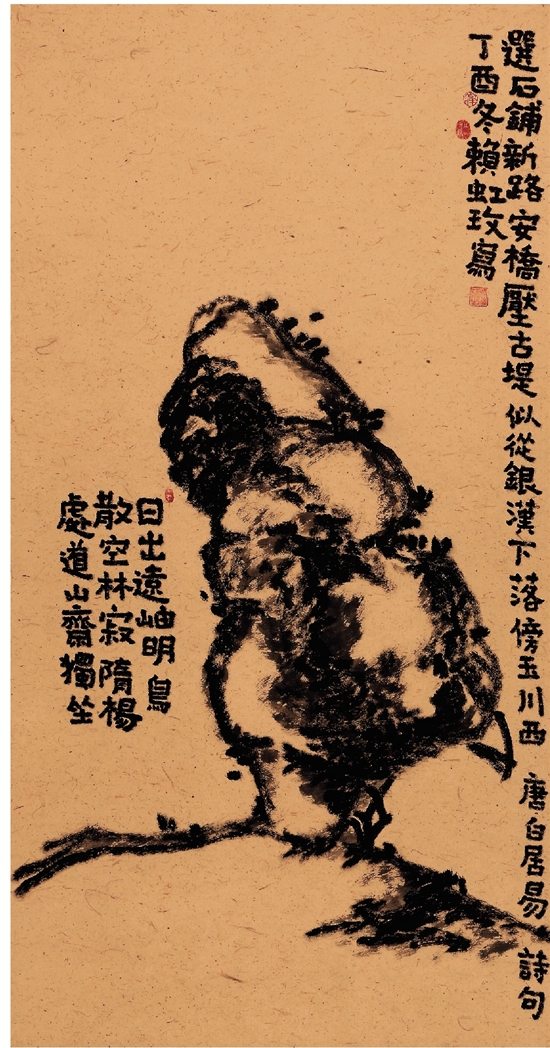 選石鋪新路安橋壓古堤似從銀漢下落傍玉川西 唐白居易 詩句
丁酉冬賴虹玫寫
日出遠岫明鳥
散空林寂隋楊
處道山齋獨坐